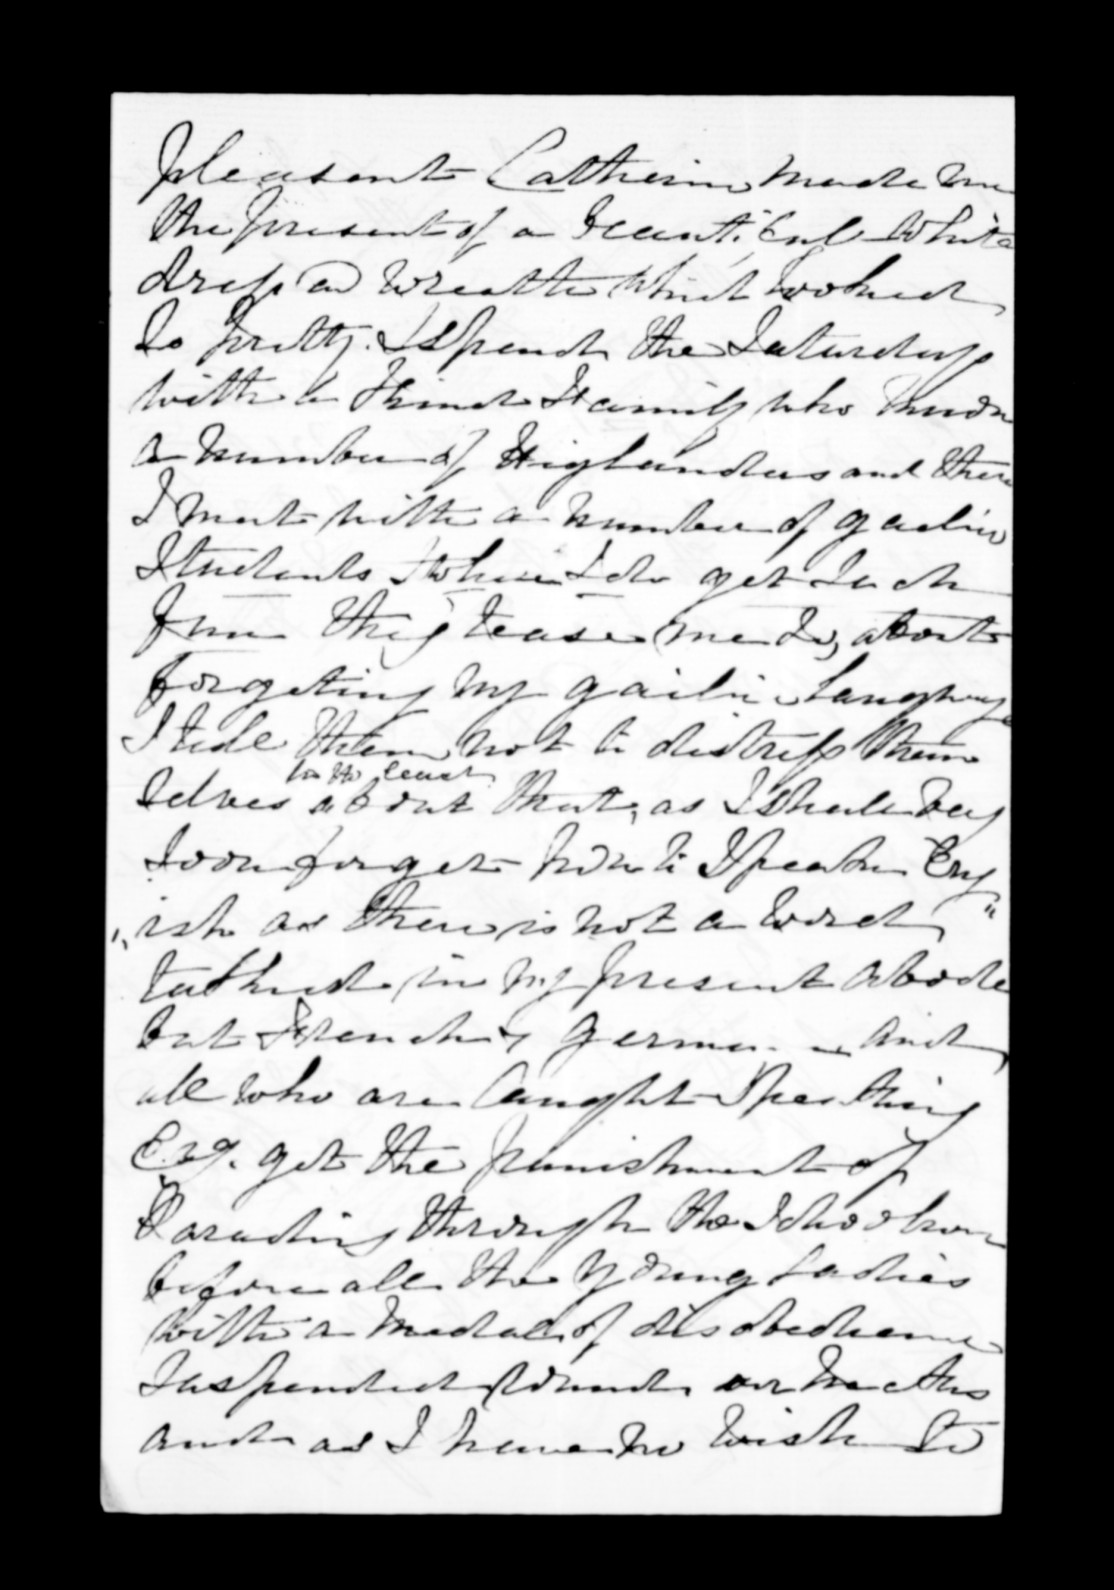 pleasant Catherin made me
the present of a beautiful White
dress and Wreath which looked
So pretty. I Spend the Saturdays
with a Kind Family who know
a number of Highlanders and there
I meet with a number of gaelic
Students Where I do get Such
fun they tease me So, about
forgeting my gailic Language
I tell them not to distress them
Selves about that, as I shall very
in the least
Soon forget how to Speak Eng
"ish as there is not a word"
talked in my present abode
but French & German and
all who are Caught Speaking
Eng. get the punishment of
Parading through the Schoolroom
before all the young Ladies
with a Medal of disobedience
Suspended round our necks
and as I have no wish to